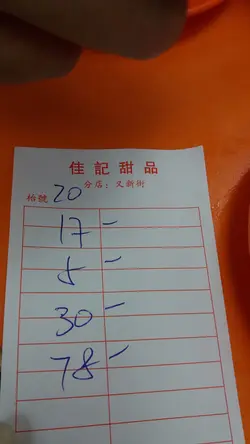 佳記甜品
分店：又新街
枱號 20
17 -
8 -
30 -
78 -